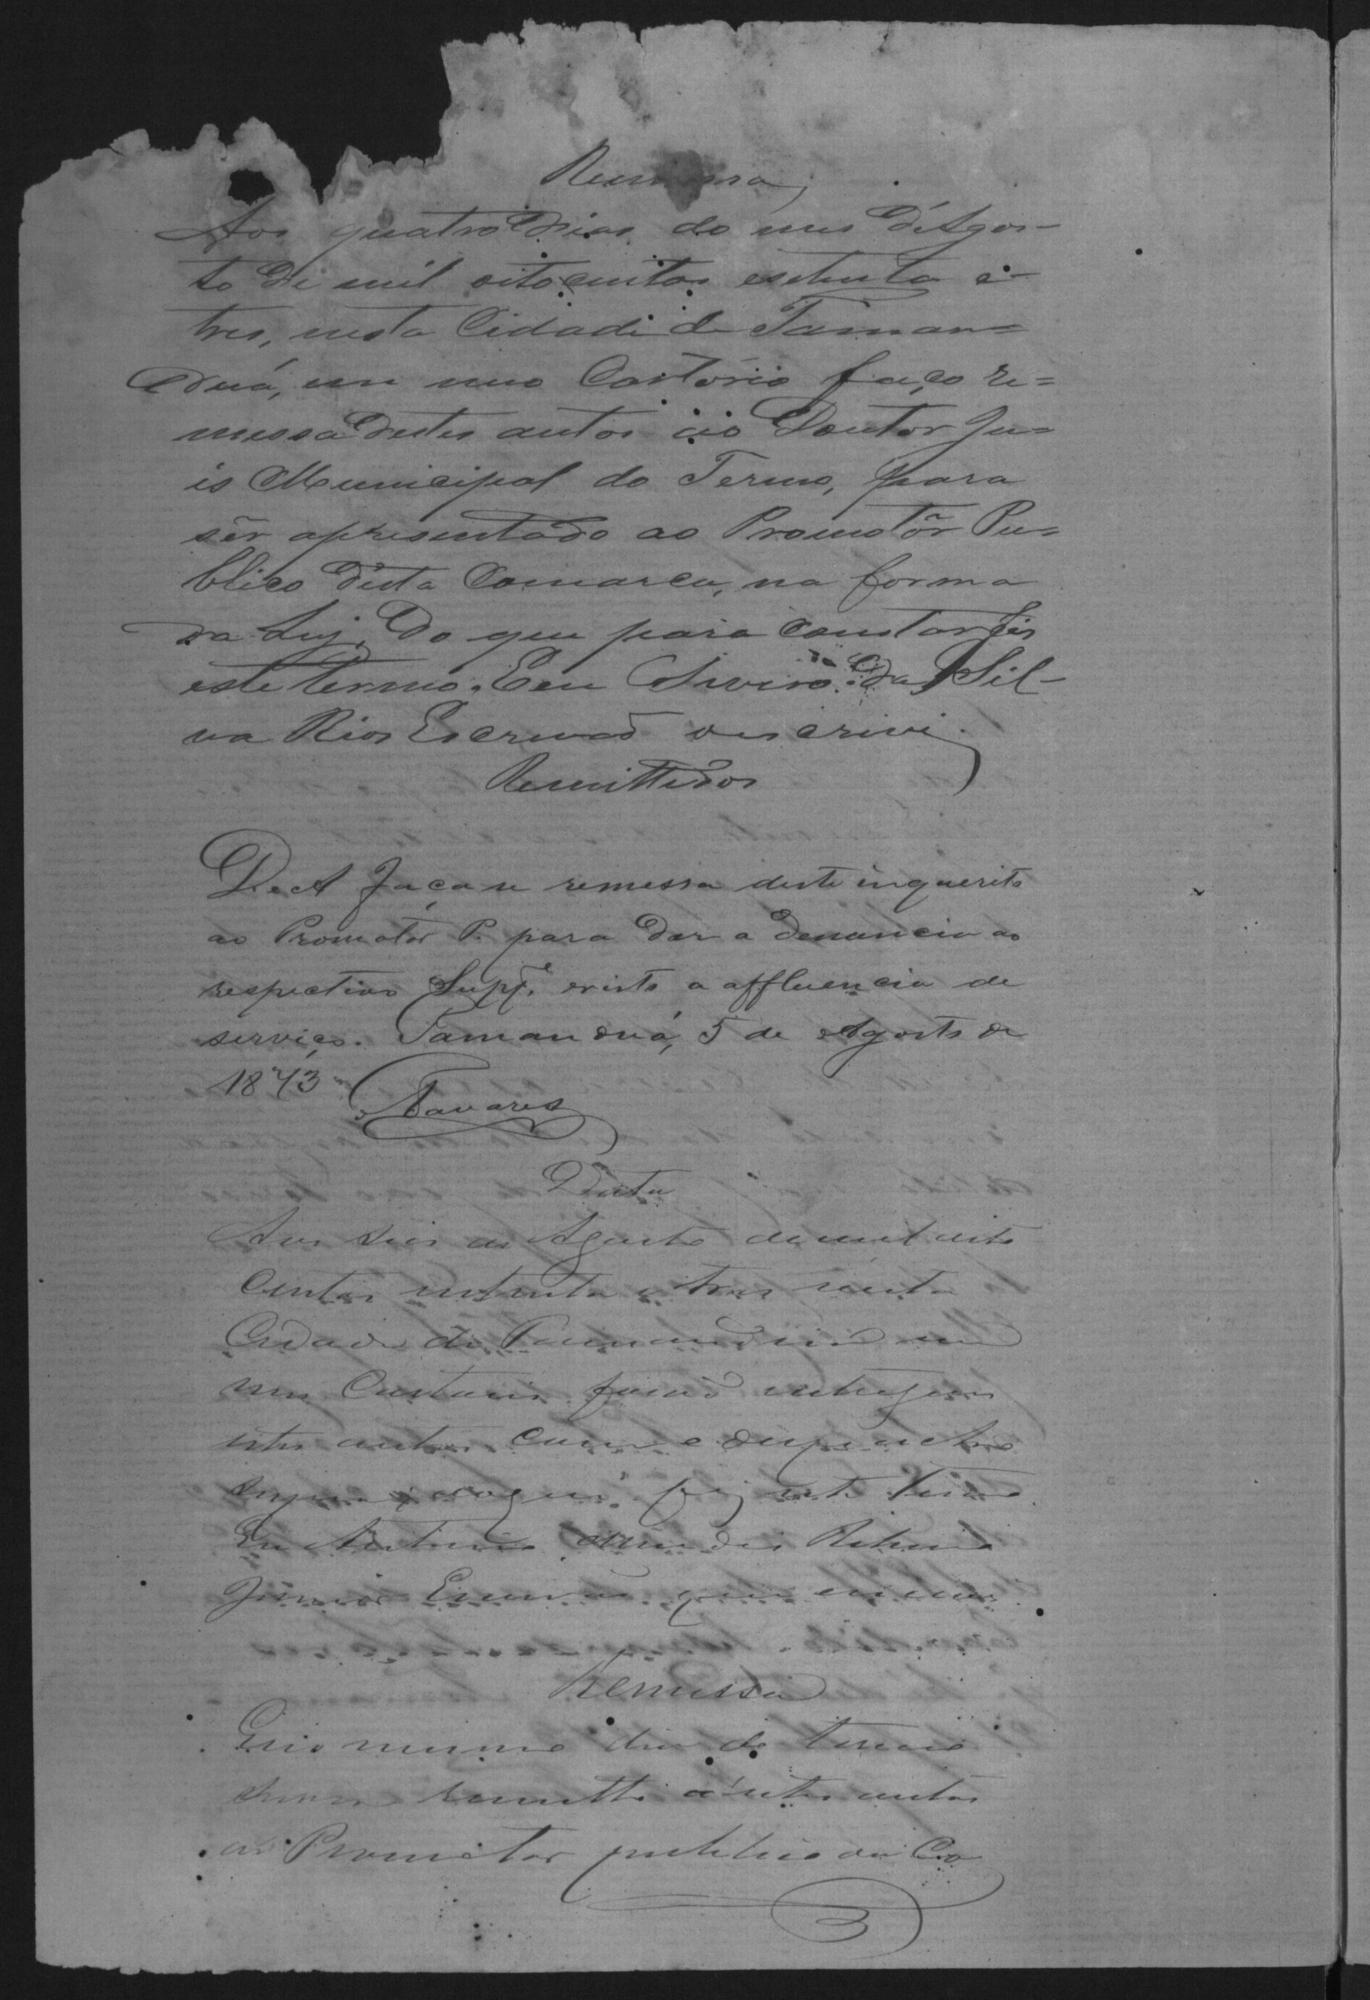 Remessa
Aos quatro dias do mes d'Agos-
to de mil oitocentos esetenta e
tres, nesta Cidade de Taman=
duá, em meu Cartório faço re=
messa destes autos ao Doutor Ju=
is Municipal do Termo, para
sêr apresentado ao Promotôr Pu=
blico desta Comarca, na forma
da Ley. Do que para constar fis
este termo. Eeu Saviro da Sil-
va Rios Escrivaõ oescrivi.
Remettidos
D. e A. Faça-se remessa deste inquerito
ao Promotor P. para dar a denuncia ao
respectivo Supl.e visto a affluencia de
serviço. Tamanduá, 5 de Agosto de
1873
Tavares
Data
Aos seis de Agosto de mil oito
Centos setenta e tres nesta
Cidade de Tamanduá em
meu Cartorio foraõ entregues
estes autos com o despacho
supra, do que fiz este termo
Eu Antonio Mendes Ribeiro
Junior Escrivaõ que escrevi
Remessa
E no mesmo dia do termo
supra remetti a estes autos
ao Promotor publico da Co